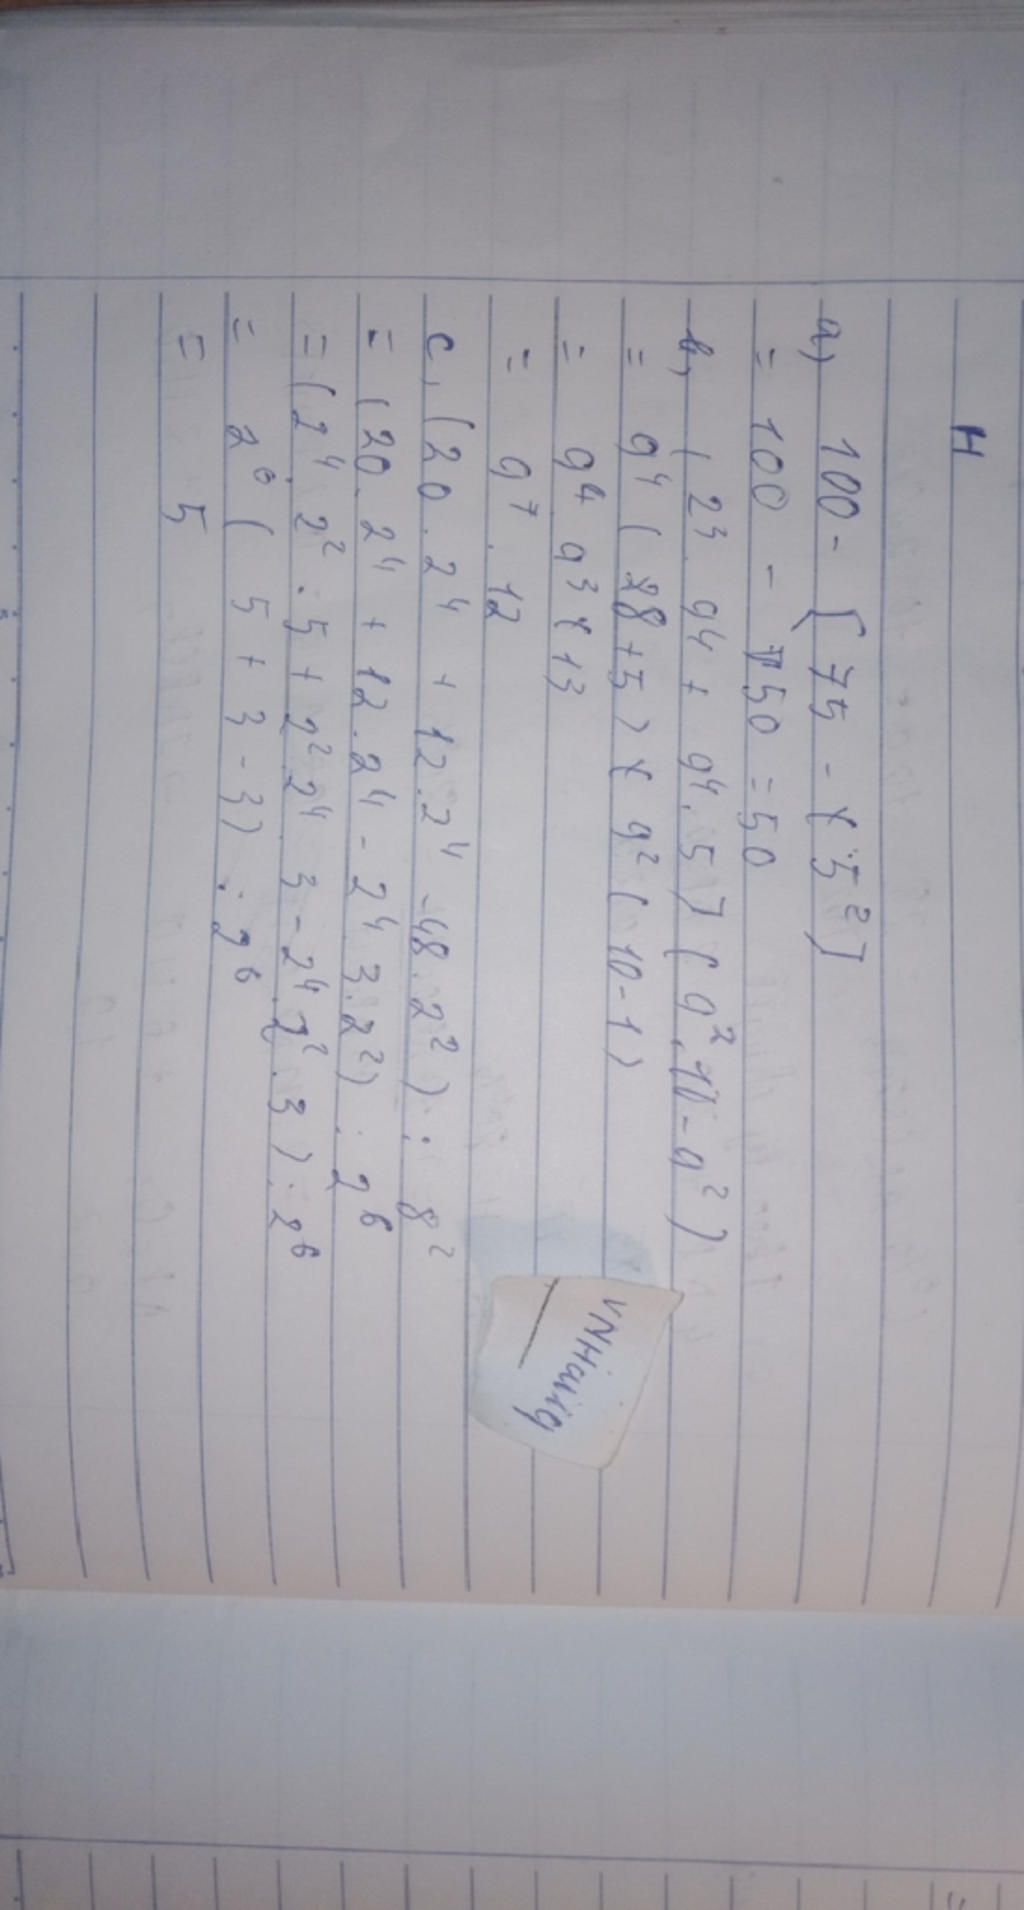 H
a, 100 - [75 - ( 5²]
= 100 - 50 = 50
b, ( 2³. 9⁴ + 9⁴. 5 ] ( 9². 10 - 9² )
= 9⁴ ( 28 + 5 ) x 9² ( 10 - 1 )
= 9⁴ 9³ x 13
= 9⁷ . 12
c, (20 . 2⁴ + 12 . 2⁴ - 48 . 2² ) : 8²
= (20 . 2⁴ + 12 . 2⁴ - 2⁴ 3 . 2² ) : 2⁶
= ( 2⁴. 2² . 5 + 2² 2⁴ 3 - 2⁴ 2² . 3 ) : 2⁶
= 2⁶ ( 5 + 3 - 3 ) : 2⁶
= 5
VNHaiig